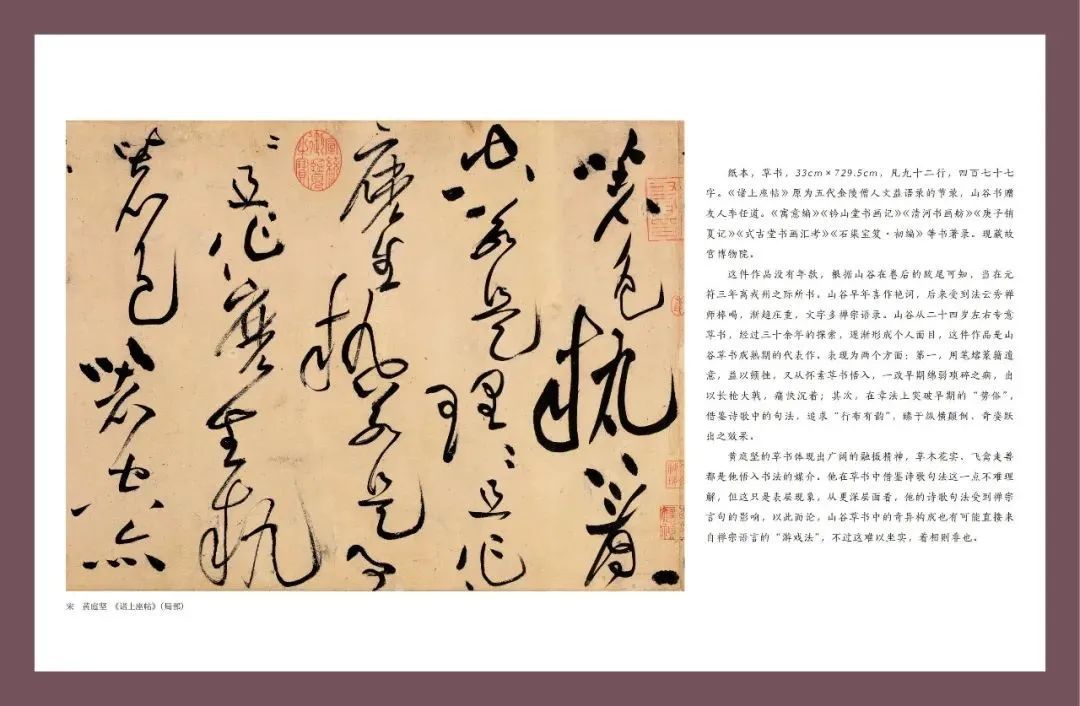 著色執著
空若是理〻且作
麼生執若是事
〻且作麼生執
著色著空亦
宋 黄庭坚 《诸上座帖》（局部）
纸本，草书，33cm×729.5cm，凡九十二行，四百七十七
字。《诸上座帖》原为五代金陵僧人文益语录的节录，山谷书赠
友人李任道。《寓意编》《钤山堂书画记》《清河书画舫》《庚子销
夏记》《式古堂书画汇考》《石渠宝笈·初编》等书著录。现藏故
宫博物院。
这件作品没有年款，根据山谷在卷后的跋尾可知，当在元
符三年离戎州之际所书。山谷早年喜作艳词，后来受到法云秀禅
师棒喝，渐趋庄重，文字多禅宗语录。山谷从二十四岁左右专意
草书，经过三十余年的探索，逐渐形成个人面目，这件作品是山
谷草书成熟期的代表作。表现为两个方面：第一，用笔熔篆籀遗
意，益以顿挫，又从怀素草书悟入，一改早期绵弱琐碎之病，出
以长枪大戟，痛快沉着；其次，在章法上突破早期的“劳俗”，
借鉴诗歌中的句法，追求“行布有韵”，臻于纵横颠倒、奇姿跃
出之效果。
黄庭坚的草书体现出广阔的融摄精神，草木花实、飞禽走兽
都是他悟入书法的媒介。他在草书中借鉴诗歌句法这一点不难理
解，但这只是表层现象，从更深层面看，他的诗歌句法受到禅宗
言句的影响，以此而论，山谷草书中的奇异构成也有可能直接来
自禅宗语言的“游戏法”，不过这难以坐实，着相则乖也。